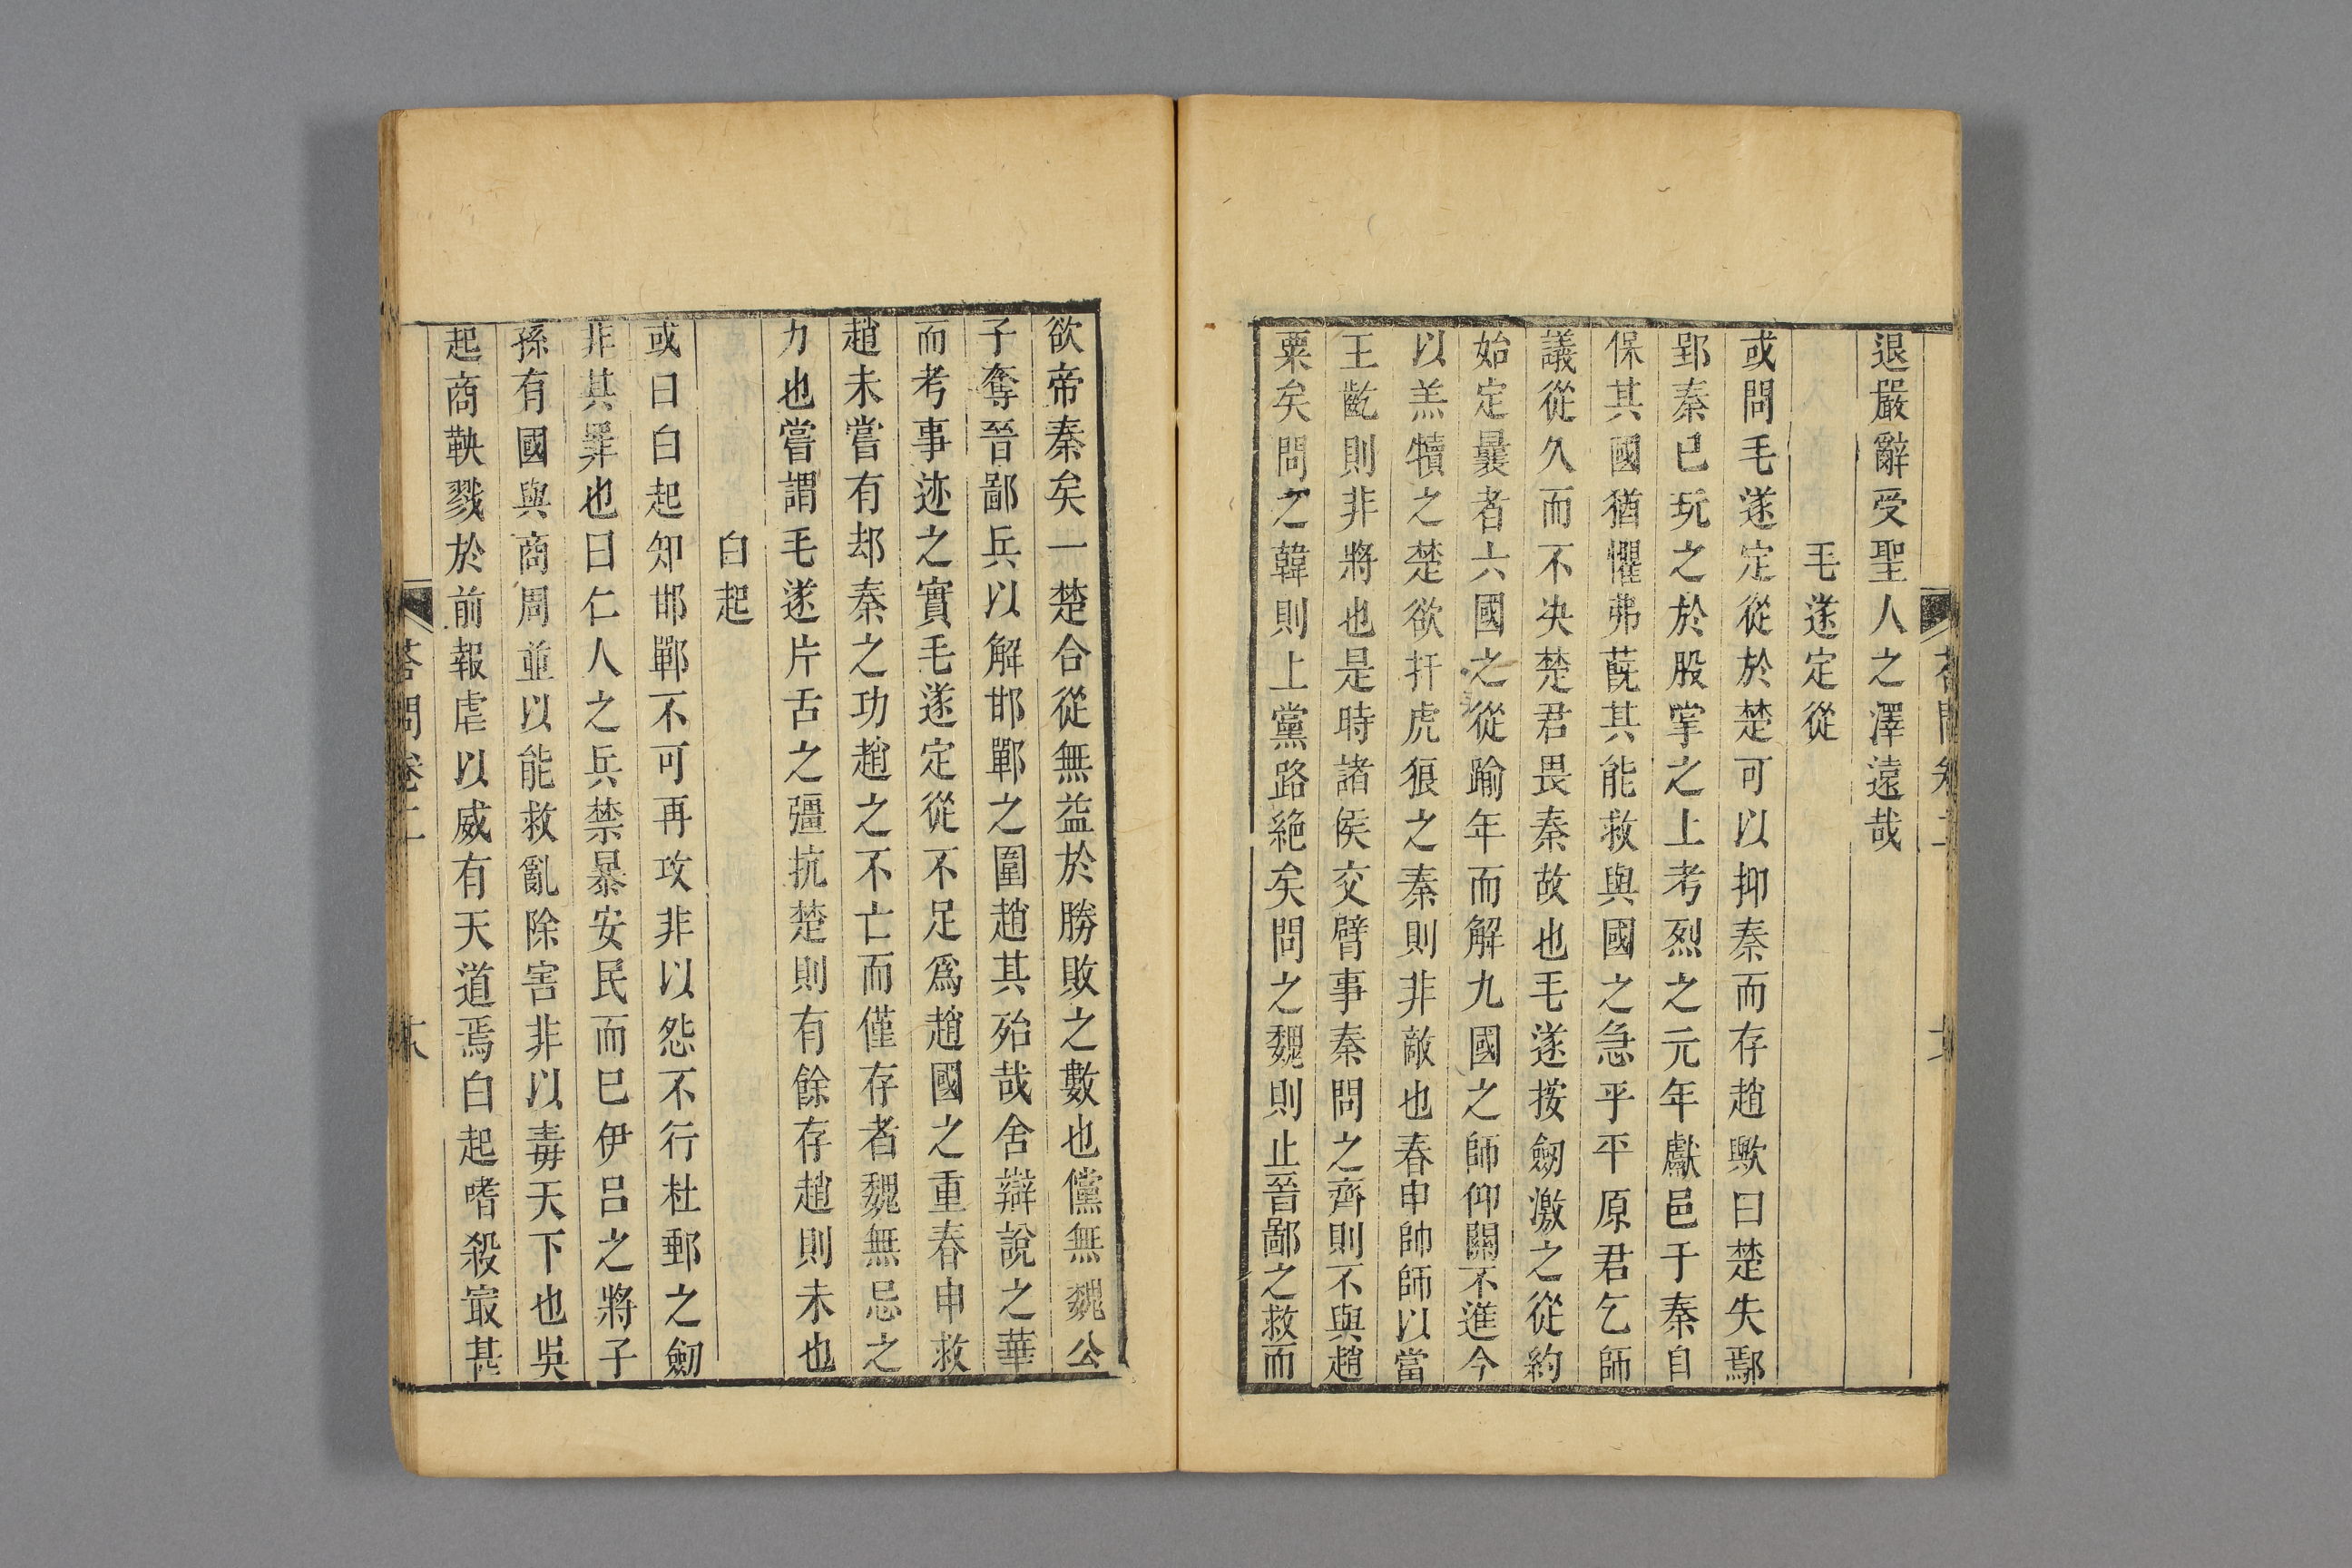 退嚴辭受聖人之澤遠哉
毛遂定從
或問毛遂定從於楚可以抑秦而存趙歟曰楚失鄢
郢秦已玩之於股掌之上考烈之元年獻邑于秦自
保其國猶懼弗蔇其能救與國之急乎平原君乞師
議從久而不决楚君畏秦故也毛遂按劒激之從約
始定曩者六國之從踰年而解九國之師仰關不進今
以羔犢之楚欲扞虎狼之秦則非敵也春申帥師以當
王齕則非將也是時諸侯交臂事秦問之齊則不與趙
粟矣問之韓則上黨路絶矣問之魏則止晉鄙之救而
欲帝秦矣一楚合從無益於勝敗之數也儻無魏公
子奪晉鄙兵以解邯鄲之圍趙其殆哉舍辯說之華
而考事迹之實毛遂定從不足爲趙國之重春申救
趙未嘗有却秦之功趙之不亡而僅存者魏無忌之
力也嘗謂毛遂片舌之彊抗楚則有餘存趙則未也
白起
或曰白起知邯鄲不可再攻非以怨不行杜郵之劒
非其罪也曰仁人之兵禁暴安民而巳伊呂之將子
孫有國與商周並以能救亂除害非以毒天下也吳
起商鞅戮於前報虐以威有天道焉白起嗜殺冣甚
答問卷二